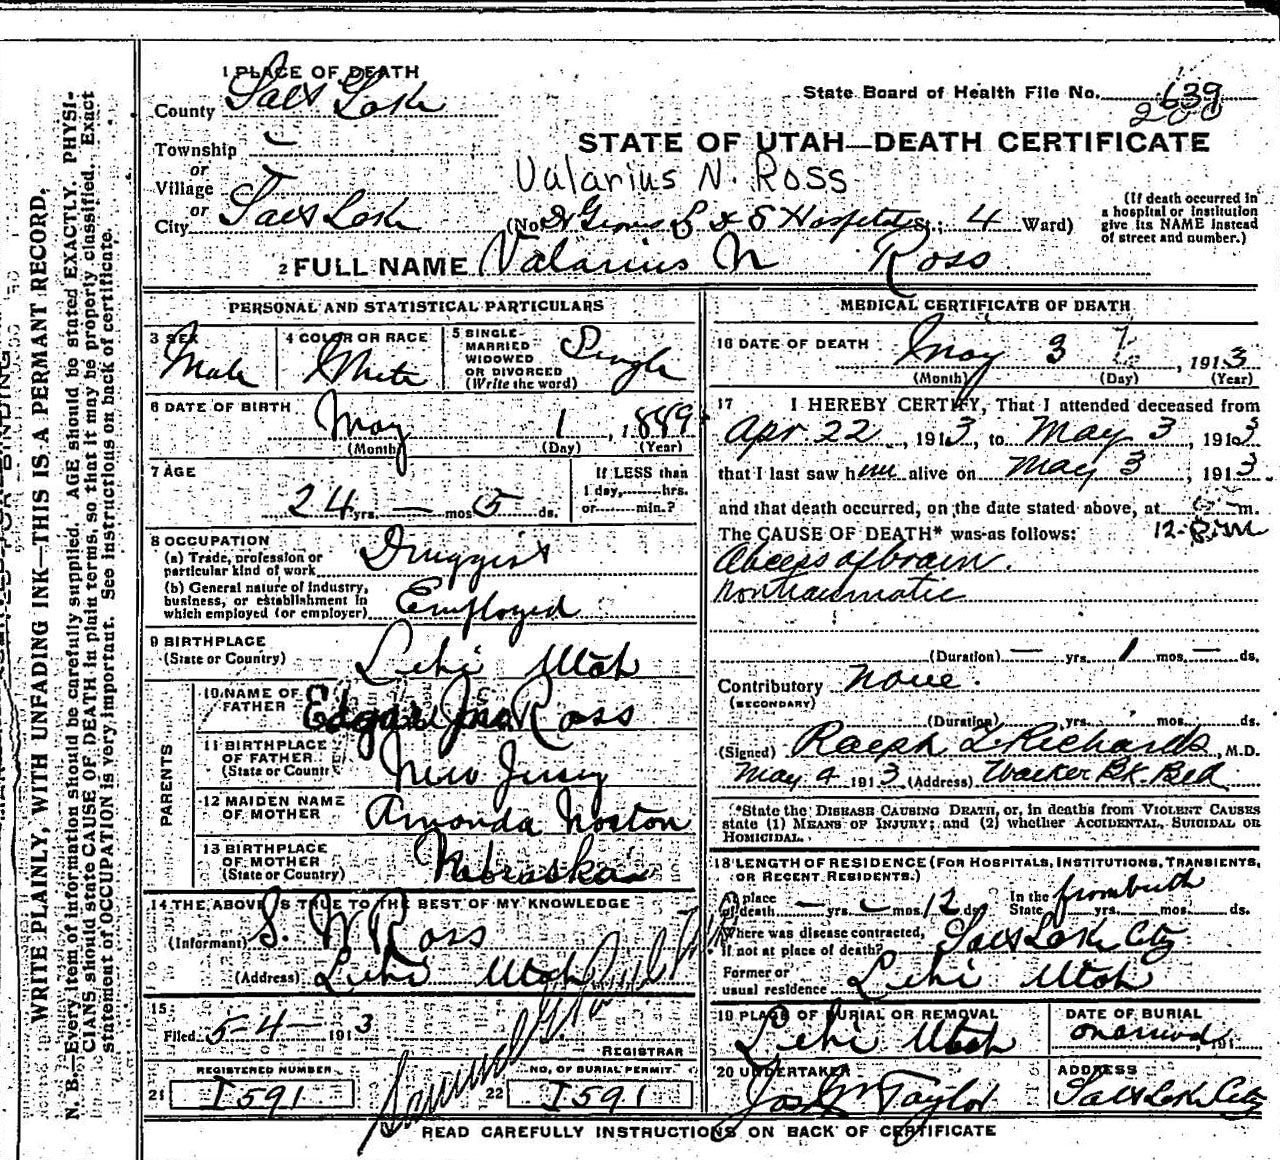 1 PLACE OF DEATH
County Salt Lake
State Board of Health File No. 639
200
STATE OF UTAH—DEATH CERTIFICATE
Township
or
Village
Valarius N. Ross
or
City Salt Lake (No. Hospital St.; 4 Ward)
(If death occurred in a hospital or institution give its NAME instead of street and number.)
2 FULL NAME Valarius N Ross
PERSONAL AND STATISTICAL PARTICULARS
3 SEX Male
4 COLOR OR RACE White
5 SINGLE MARRIED WIDOWED OR DIVORCED (Write the word) Single
6 DATE OF BIRTH May 1, 1889
(Month) (Day) (Year)
7 AGE 24 yrs. — mos 5 ds.
If LESS than 1 day, hrs. or min.?
8 OCCUPATION
(a) Trade, profession or particular kind of work Druggist
(b) General nature of industry, business, or establishment in which employed (or employer) Employed
9 BIRTHPLACE (State or Country) Lehi Utah
PARENTS
10 NAME OF FATHER Edgar Jno. Ross
11 BIRTHPLACE OF FATHER (State or Country) New Jersey
12 MAIDEN NAME OF MOTHER Amanda Norton
13 BIRTHPLACE OF MOTHER (State or Country) Nebraska
14 THE ABOVE IS TRUE TO THE BEST OF MY KNOWLEDGE
(Informant) S. W Ross
(Address) Lehi Utah
15
Filed 5-4- 1913
REGISTRAR
REGISTERED NUMBER
21 I591
NO. OF BURIAL PERMIT
22 I591
MEDICAL CERTIFICATE OF DEATH
16 DATE OF DEATH May 3, 1913
(Month) (Day) (Year)
17 I HEREBY CERTIFY, That I attended deceased from
Apr. 22, 1913, to May 3, 1913
that I last saw him alive on May 3, 1913
and that death occurred, on the date stated above, at m.
The CAUSE OF DEATH* was as follows:
Abcess of brain.
Nontraumatic
(Duration) — yrs. 1 mos. — ds.
Contributory None.
(SECONDARY)
(Duration) yrs. mos. ds.
(Signed) Ralph T Richards, M.D.
May 4 1913 (Address) Walker Bk. Bld
*State the DISEASE CAUSING DEATH, or, in deaths from VIOLENT CAUSES
state (1) MEANS OF INJURY; and (2) whether ACCIDENTAL, SUICIDAL OR
HOMICIDAL.
18 LENGTH OF RESIDENCE (FOR HOSPITALS, INSTITUTIONS, TRANSIENTS,
OR RECENT RESIDENTS.)
At place of death — yrs. mos. 12 ds. In the State from birth yrs. mos. ds.
Where was disease contracted, if not at place of death? Salt Lake City
Former or usual residence Lehi Utah
19 PLACE OF BURIAL OR REMOVAL Lehi Utah
DATE OF BURIAL 191
20 UNDERTAKER Jos Wm Taylor
ADDRESS Salt Lake City
READ CAREFULLY INSTRUCTIONS ON BACK OF CERTIFICATE
WRITE PLAINLY, WITH UNFADING INK—THIS IS A PERMANT RECORD.
N. B.—Every item of information should be carefully supplied. AGE should be stated EXACTLY. PHYSI-
CIANS should state CAUSE OF DEATH in plain terms, so that it may be properly classified. Exact
statement of OCCUPATION is very important. See instructions on back of certificate.